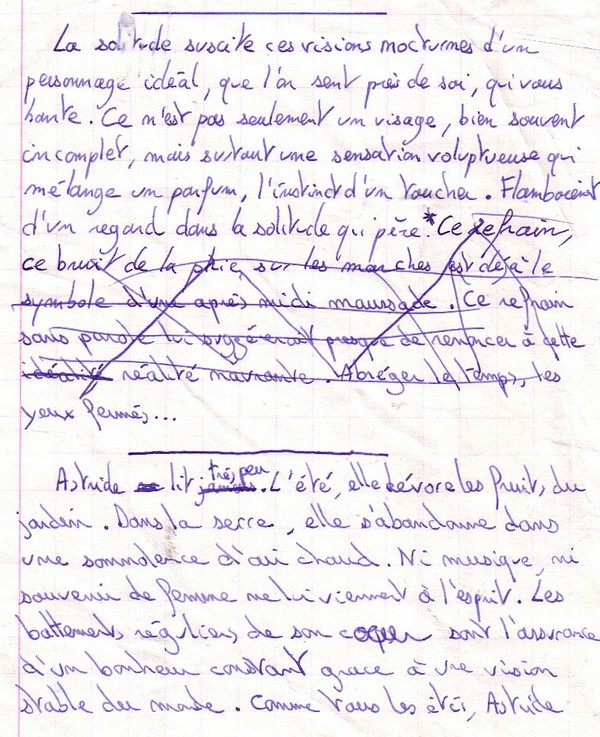 La solitude suscite ces visions nocturnes d'un
personnage idéal, que l'on sent près de soi, qui vous
hante. Ce n'est pas seulement un visage, bien souvent
incomplet, mais surtout une sensation voluptueuse qui
mélange un parfum, l'instinct d'un toucher. Flamboiement
d'un regard dans la solitude qui pèse.* Ce refrain,
ce bruit de la pluie, sur les marches est déjà le
symbole d'une après midi maussade. Ce refrain
sans parole lui suggérerait presque de renoncer à cette
idéalité réalité navrante. Abréger le temps, les
yeux fermés...
Astride lit jamais très peu. L'été, elle dévore les fruits du
jardin. Dans la serre, elle s'abandonne dans
une somnolence d'air chaud. Ni musique, ni
souvenir de femme ne lui viennent à l'esprit. Les
battements réguliers de son coeur sont l'assurance
d'un bonheur constant grace à une vision
stable du monde. Comme tous les étés, Astride